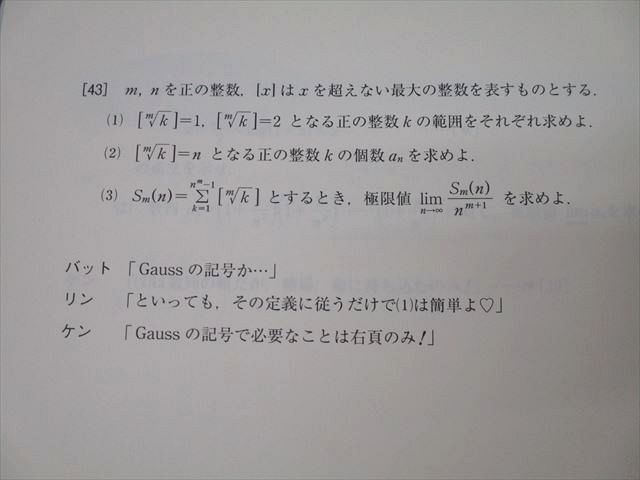 [43] m, n を正の整数, [x] は x を超えない最大の整数を表すものとする.
(1) [ᵐ√k]=1, [ᵐ√k]=2 となる正の整数 k の範囲をそれぞれ求めよ.
(2) [ᵐ√k]=n となる正の整数 k の個数 aₙ を求めよ.
(3) Sₘ(n)=∑_{k=1}^{nᵐ-1} [ᵐ√k] とするとき, 極限値 lim_{n→∞} Sₘ(n)/n^{m+1} を求めよ.
バット 「Gauss の記号か…」
リン 「といっても, その定義に従うだけで(1)は簡単よ♡」
ケン 「Gauss の記号で必要なことは右頁のみ!」